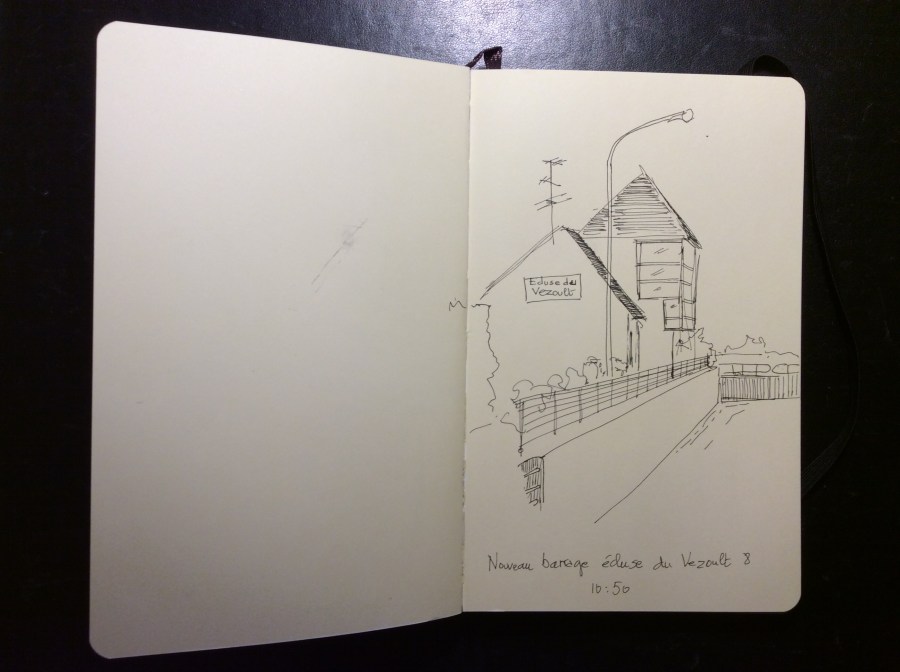 Ecluse du
Vezoult
Nouveau barrage écluse du Vezoult 8
10:50